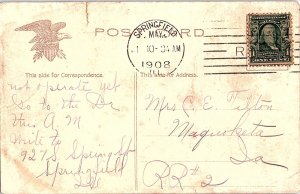 SPRINGFIELD
MAY
1 10-04AM
1908
POST CARD
R
This side for Correspondence.
This side for Address.
not operate yet
Go to the Dr
this A.M
write to
927 S. Spring St
Springfield
Ill
Mrs C. E. Felton
Maquoketa
Ia
RR#2